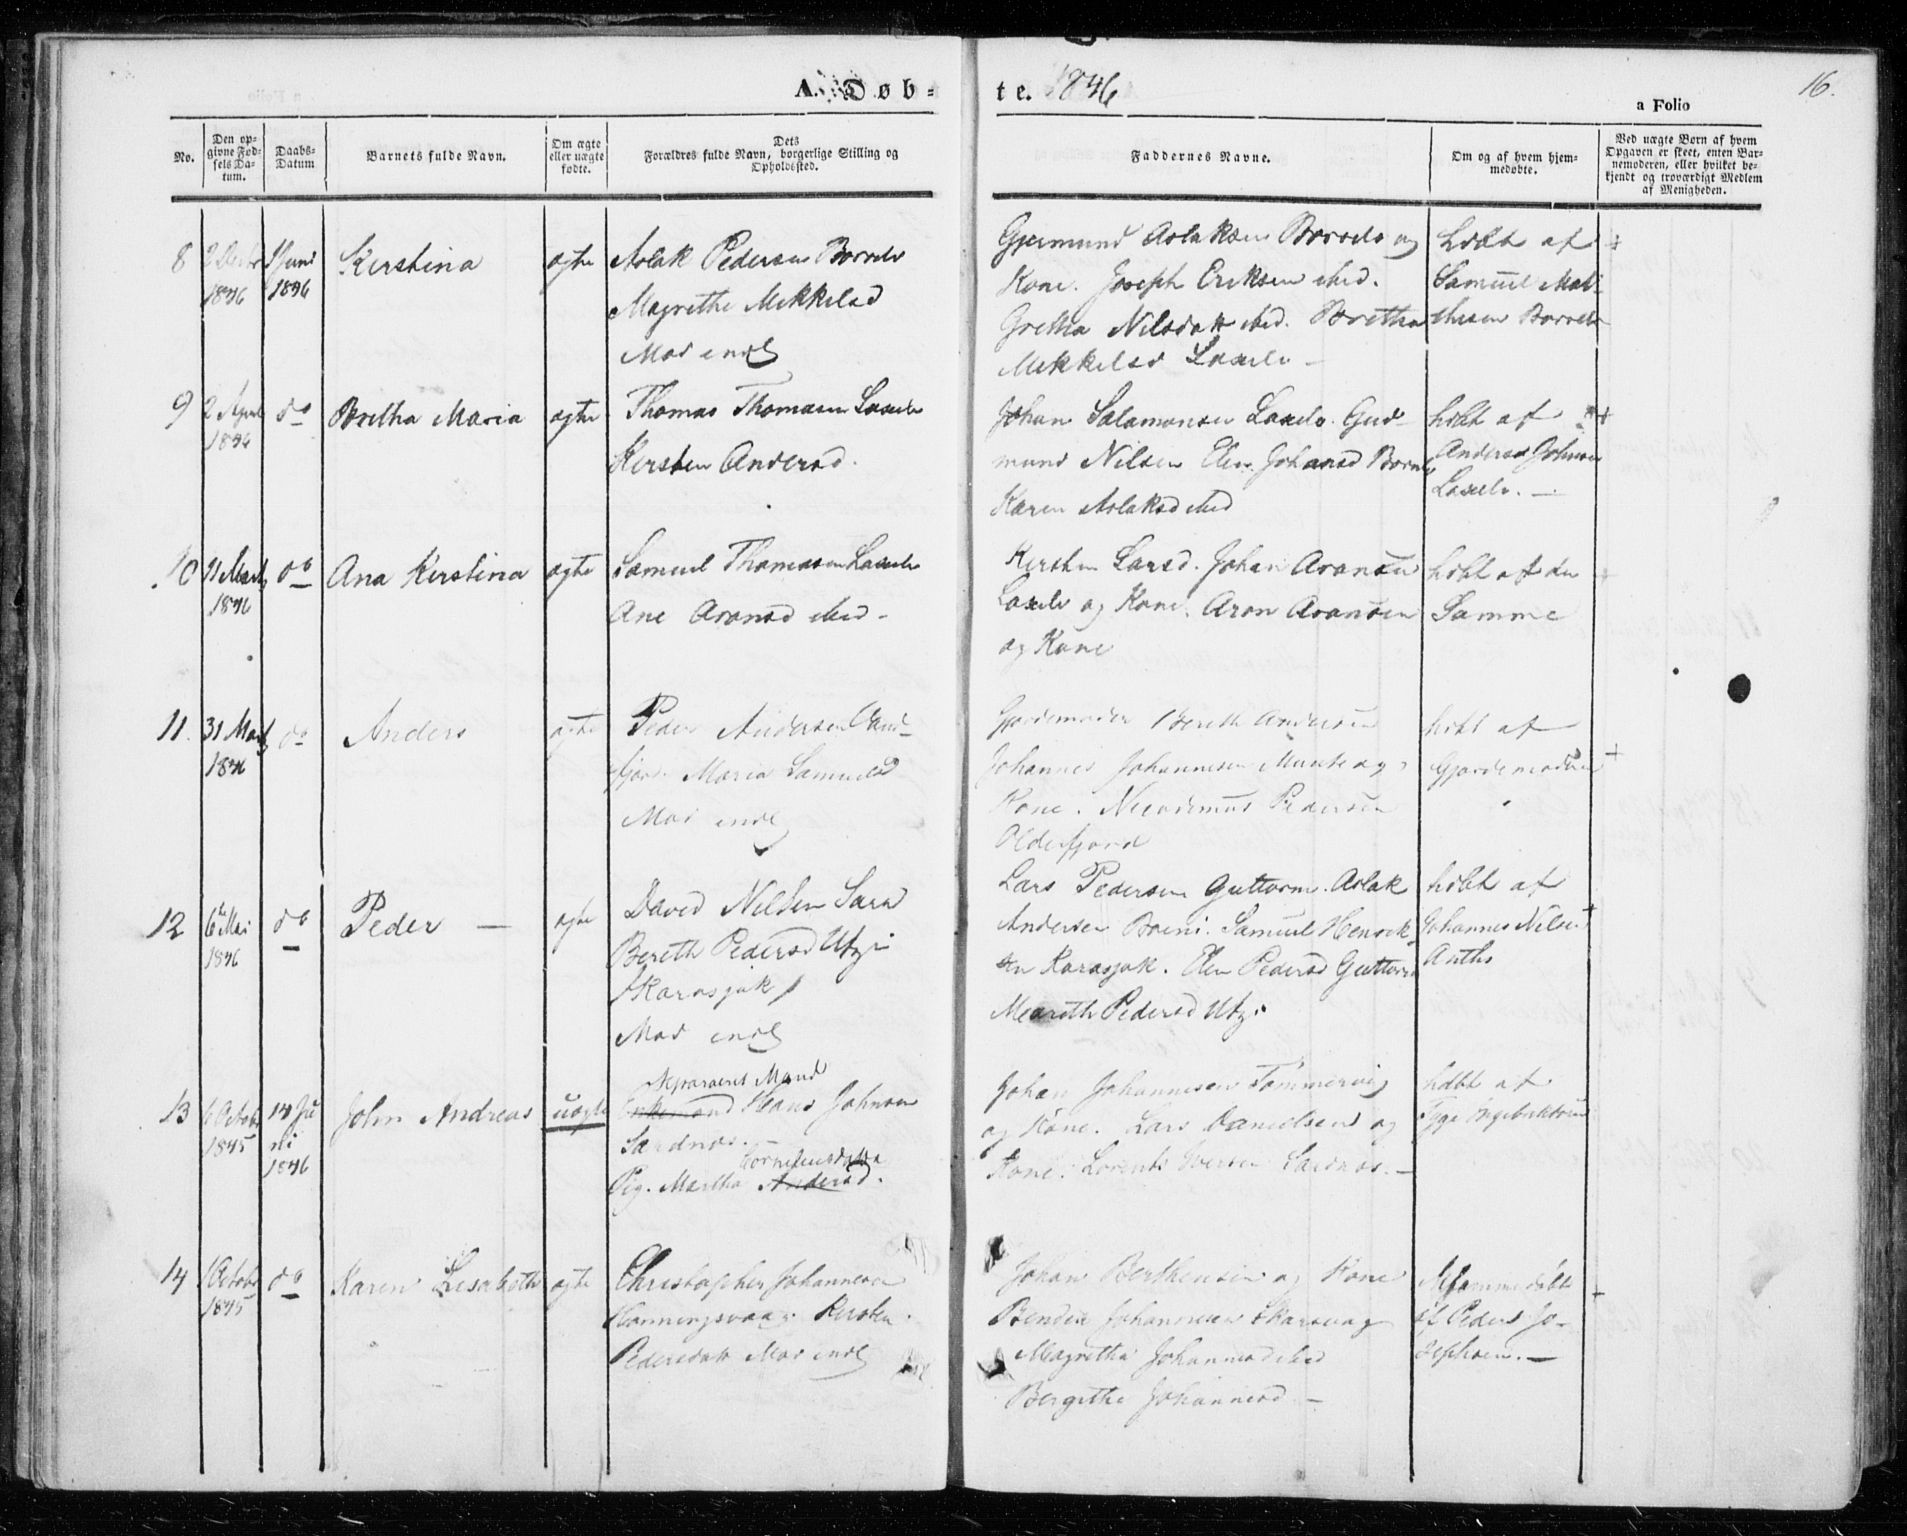 A. Døb-
te. 1846
16.
a Folio
No.
Den op-
givne Fød-
sels Da-
tum.
Daabs-
Datum
Barnets fulde Navn.
Om ægte
eller uægte
fødte.
Dets
Forældres fulde Navn, borgerlige Stilling og
Opholdssted.
Faddernes Navne.
Om og af hvem hjem-
medøbte.
Ved uægte Børn af hvem
Opgaven er skeet, enten Bar-
nemoderen, eller hvilket be-
kjendt og troværdigt Medlem
af Menigheden.
8
1846
1 Juni
1846
Kerstina
ægte
Aslak Pedersen
Magrethe Mikkelsd
Mod indl
Gjermund Aslaksen og
Kone. Joseph Eriksen ibid.
Gretha Nilsdatt ibid. Bretha
Mikkelsd Laxelv
hdbt af
Samuel Mat-
thisen
9
2 April
1846
do
Bretha Maria
ægte
Thomas Thomasen Laxelv
Kersten Andersd.
Johan Salamonsen Laxelv. Gud-
mund Nilsen Elen Johansd
Karen Aslaksd ibid
hdbt af
Anders Johnsen
Laxelv.
10
11 Marts
1846
do
Ana Kerstina
ægte
Samuel Thomasen Laxelv
Ane Aronsd ibid
Kersten Larsd. Johan Aronsen
Laxelv og Kone. Aron Aronsen
og Kone
hdbt af den
Samme
11.
31 Marts
1846
do
Anders
ægte
Peder Andersen
fjord. Maria Samuelsd
Mod indl
Gjordemoder Bereth Andersen
Johannes Johannesen og
Kone. Nicodemus Pedersen
Olderfjord
hdbt af
Gjordemoderen
12
6te Mai
1846
do
Peder —
ægte
David Nilsen Sara
Bereth Pedersd Utzi
Karasjok
Mod indl
Lars Pedersen Guttorm. Aslak
Andersen. Samuel Henrik-
sen Karasjok. Elen Pedersd Guttorm
Mareth Pedersd Utzi
hdbt af
Johannes Nilsen
Anths
13
6 Octobr
1845
14 Ju
ni
1846
John Andreas
uægte
Separeret Mand
Enkemand Hans Johnsen
Sandnes.
Corneliusdatter
Pig. Martha Andersd.
Johan Johannesen Tømmervig
og Kone. Lars Danielsen og
Kone. Lorents Iversen Sandnes.
hdbt af
14
1845
do
Karen Lisabeth
ægte
Christopher Johannesen
Honningsvaag. Kersten
Pedersdatt Mod indl
Johan Berthensen og Kone
Bendix Johannesen Skarsvag
Magretha Johannesd ibid
Bergithe Johannesd —
Hjemmedøbt
af Peders Jo-
sephsen. —